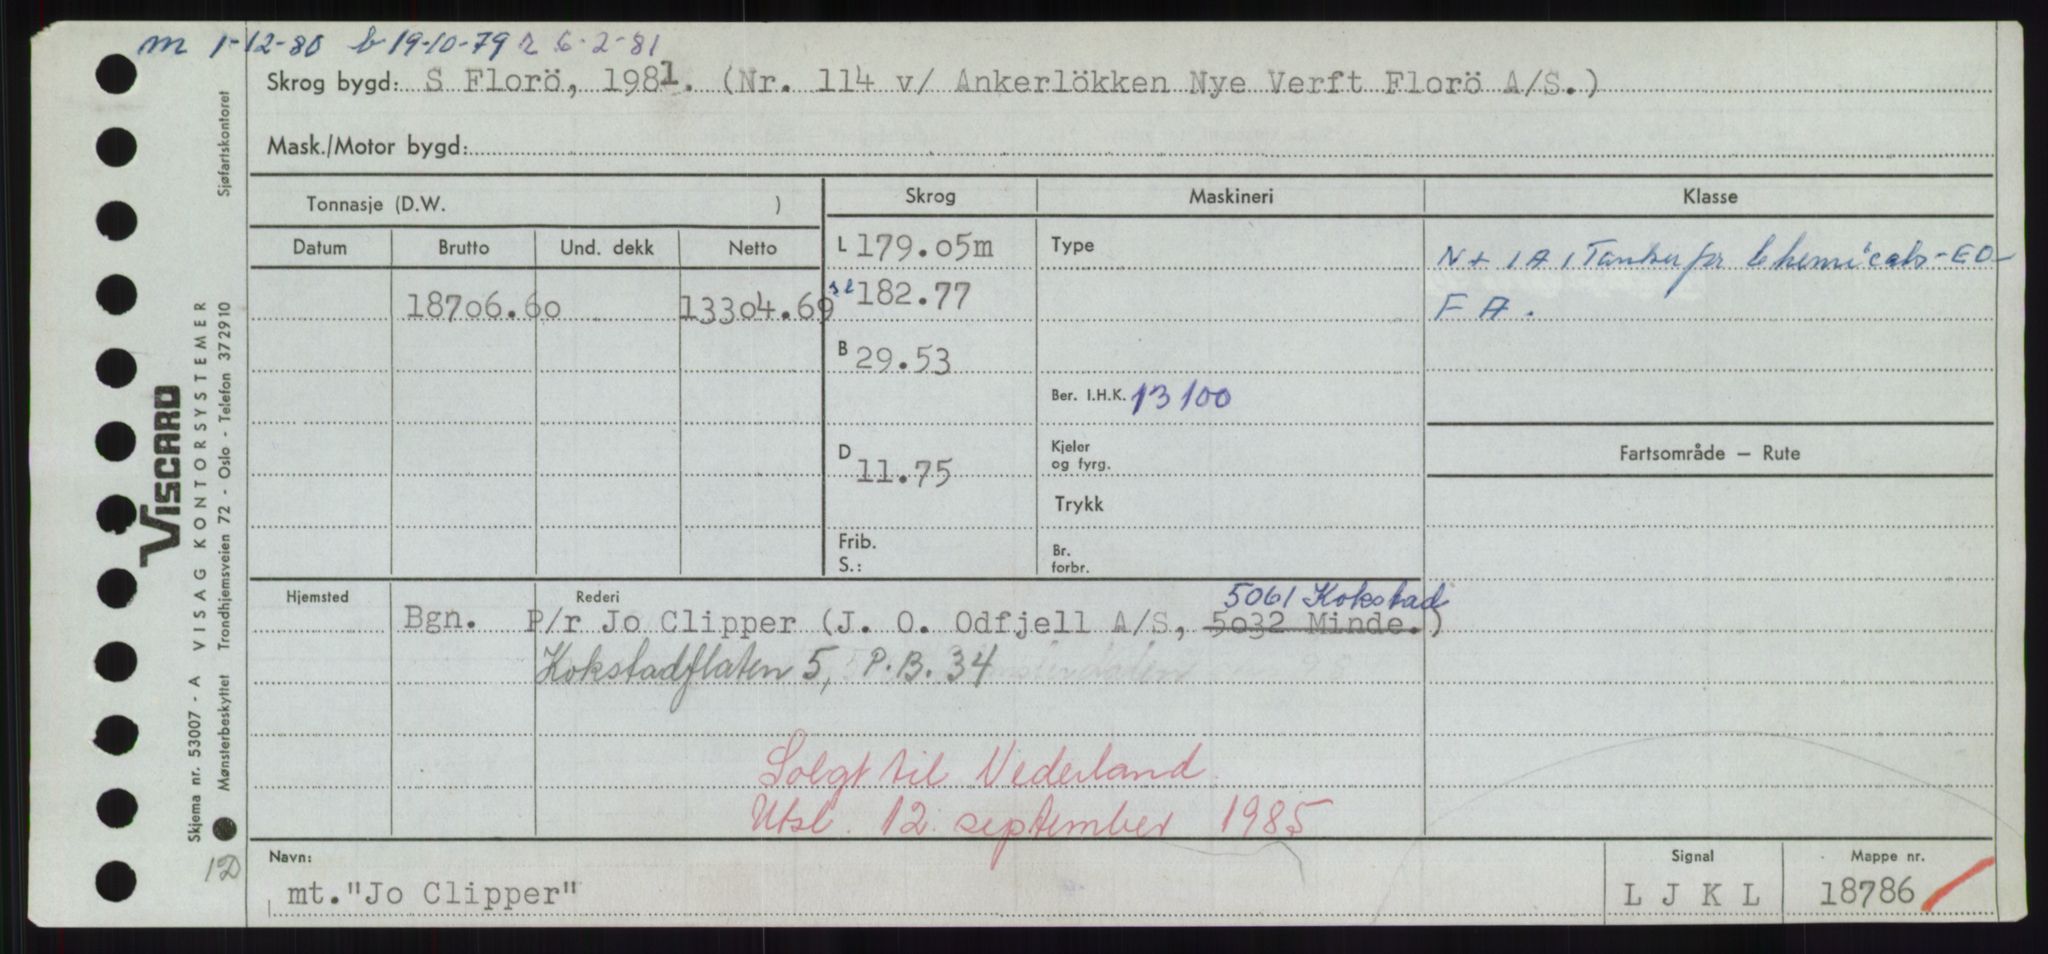 m 1-12-80 b 19-10-79 r 6-2-81
Skrog bygd: S Florö, 1981. (Nr. 114 v/ Ankerlökken Nye Verft Florö A/S.)
Mask./Motor bygd:
Tonnasje (D.W. )
Skrog
Maskineri
Klasse
Datum
Brutto
Und. dekk
Netto
L 179.05m
Type
N + 1A1 Tanker for Chemicals-EO-
18706.60
13304.69
182.77
F A.
B 29.53
Ber. I.H.K. 13100
D 11.75
Kjeler
og fyrg.
Fartsområde — Rute
Trykk
Frib.
S.:
Br.
forbr.
Hjemsted
Rederi
5061 Kokstad
Bgn. P/r Jo Clipper (J. O. Odfjell A/S, 5032 Minde.)
Kokstadflaten 5, P.B. 34
Solgt til Nederland.
Utsl. 12. september 1985
Navn:
mt."Jo Clipper"
Signal
L J K L
Mappe nr.
18786
VISCARD
Skjema nr. 53007 - A VISAG KONTORSYSTEMER
Mønsterbeskyttet Trondhjemsveien 72 - Oslo - Telefon 372910
Sjøfartskontoret
12